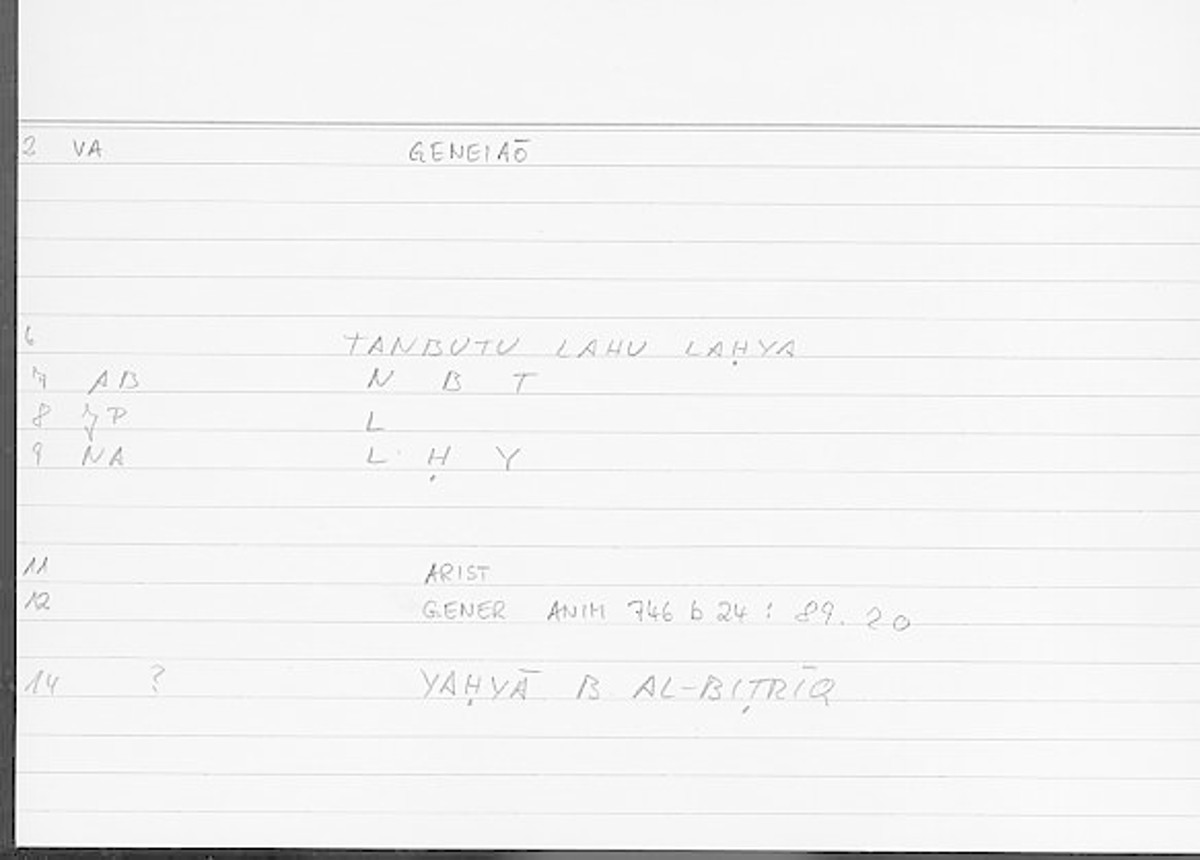 2 VA GENEIAŌ
6 TANBUTU LAHU LAḤYA
7 AB N B T
8 JP L
9 NA L Ḥ Y
11 ARIST
12 GENER ANIM 746 b 24 : 89. 20
14 ? YAḤYĀ B AL-BIṬRĪQ